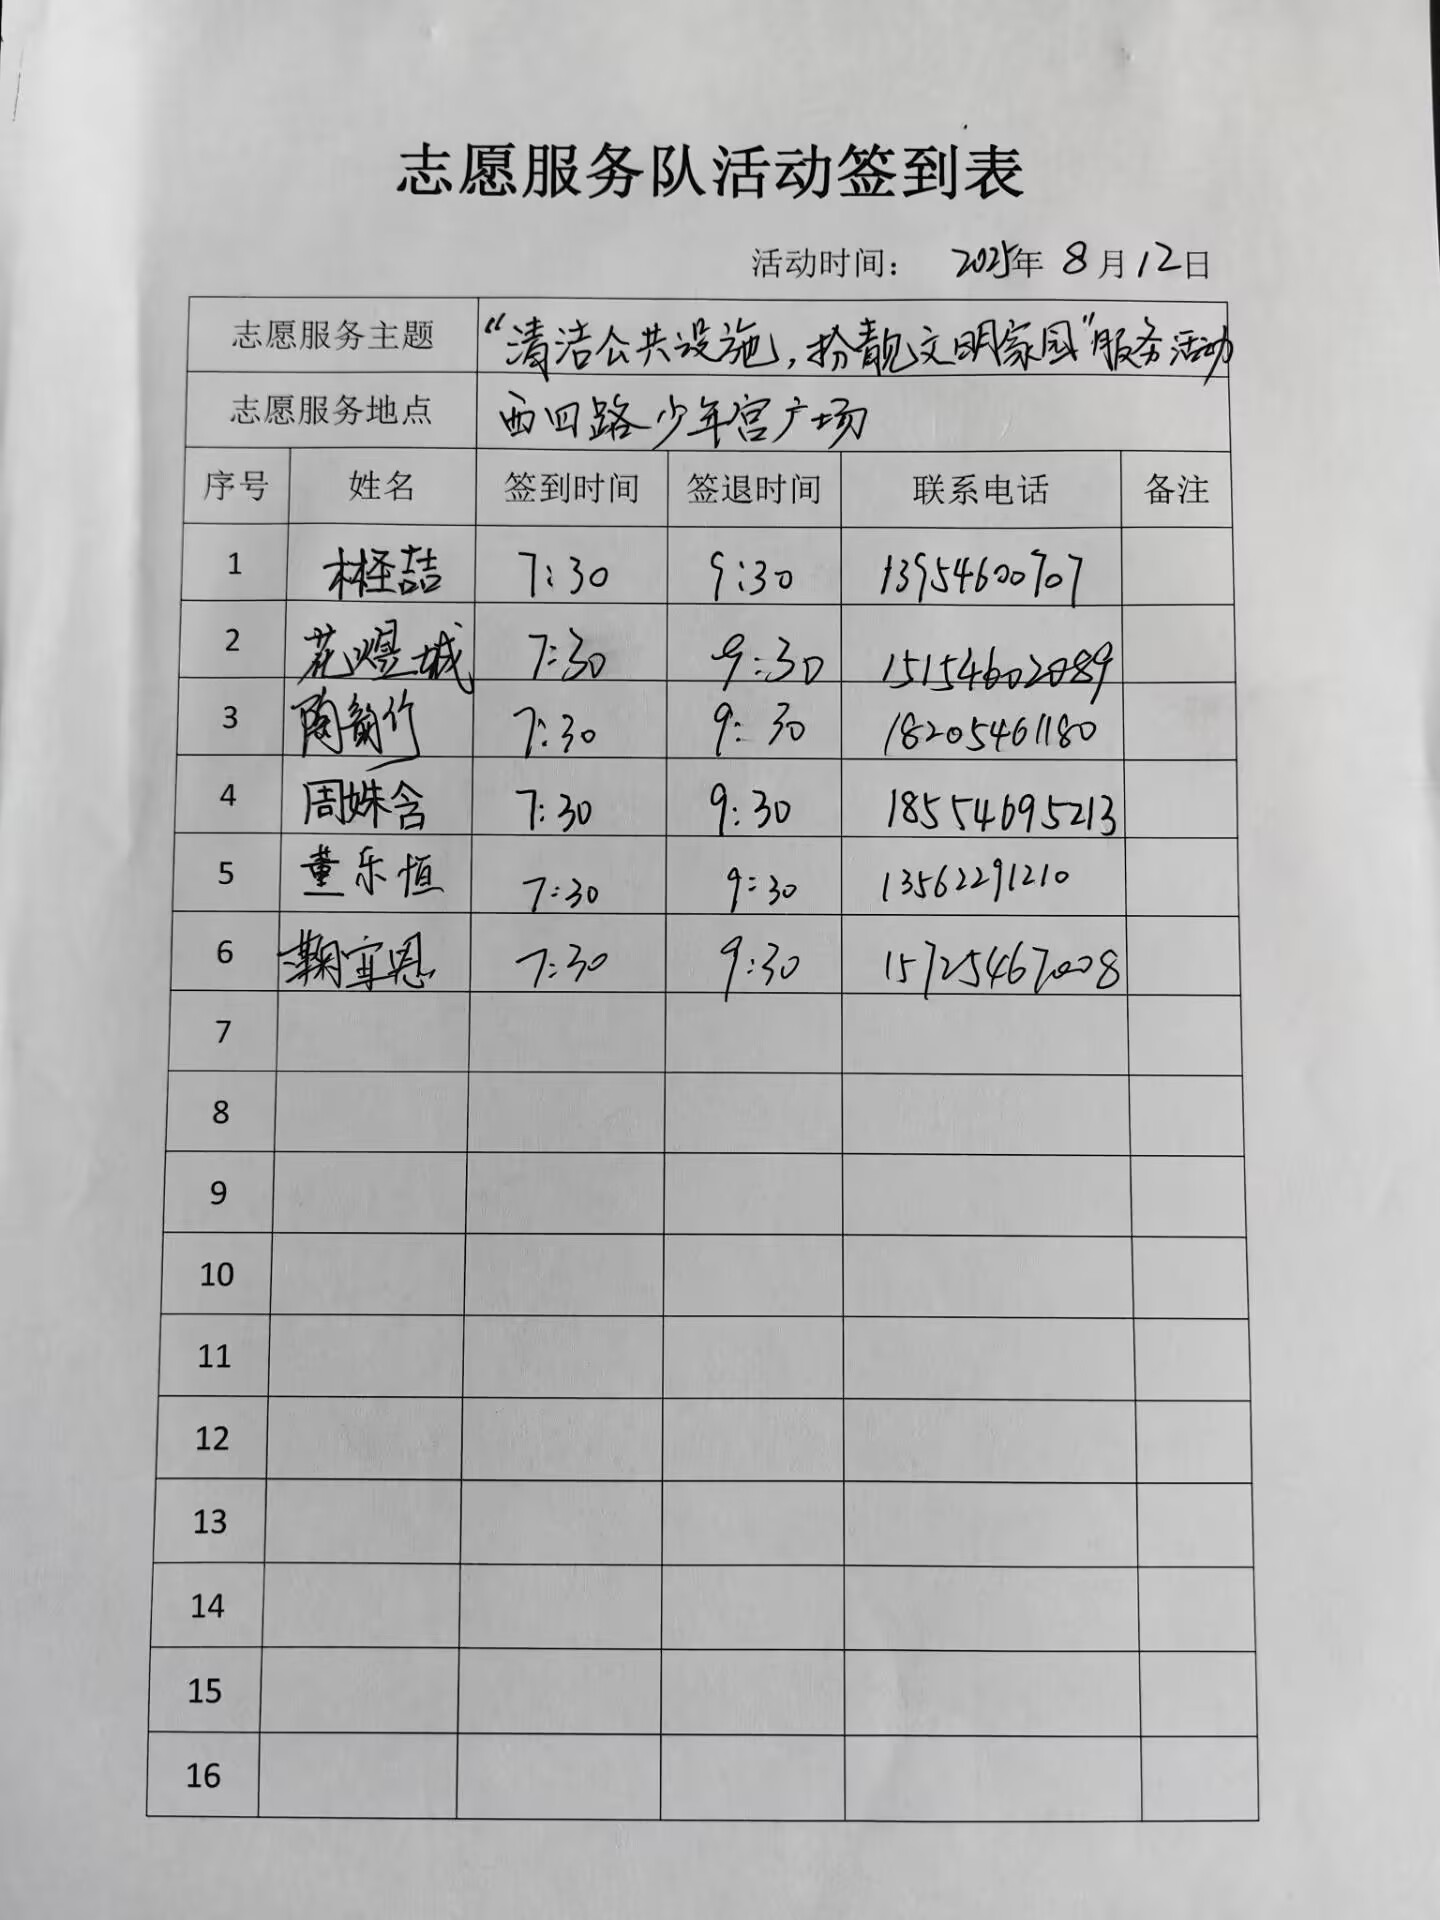 志愿服务队活动签到表
活动时间： 2025年 8月12日
志愿服务主题 “清洁公共设施，扮靓文明家园”服务活动
志愿服务地点 西四路少年宫广场
序号 姓名 签到时间 签退时间 联系电话 备注
1 林柽喆 7:30 9:30 13954600707
2 花煜城 7:30 9:30 15154602089
3 陶韵竹 7:30 9:30 18205461180
4 周姝含 7:30 9:30 18554695213
5 董乐恒 7:30 9:30 13562291210
6 鞠宜恩 7:30 9:30 15725467008
7
8
9
10
11
12
13
14
15
16